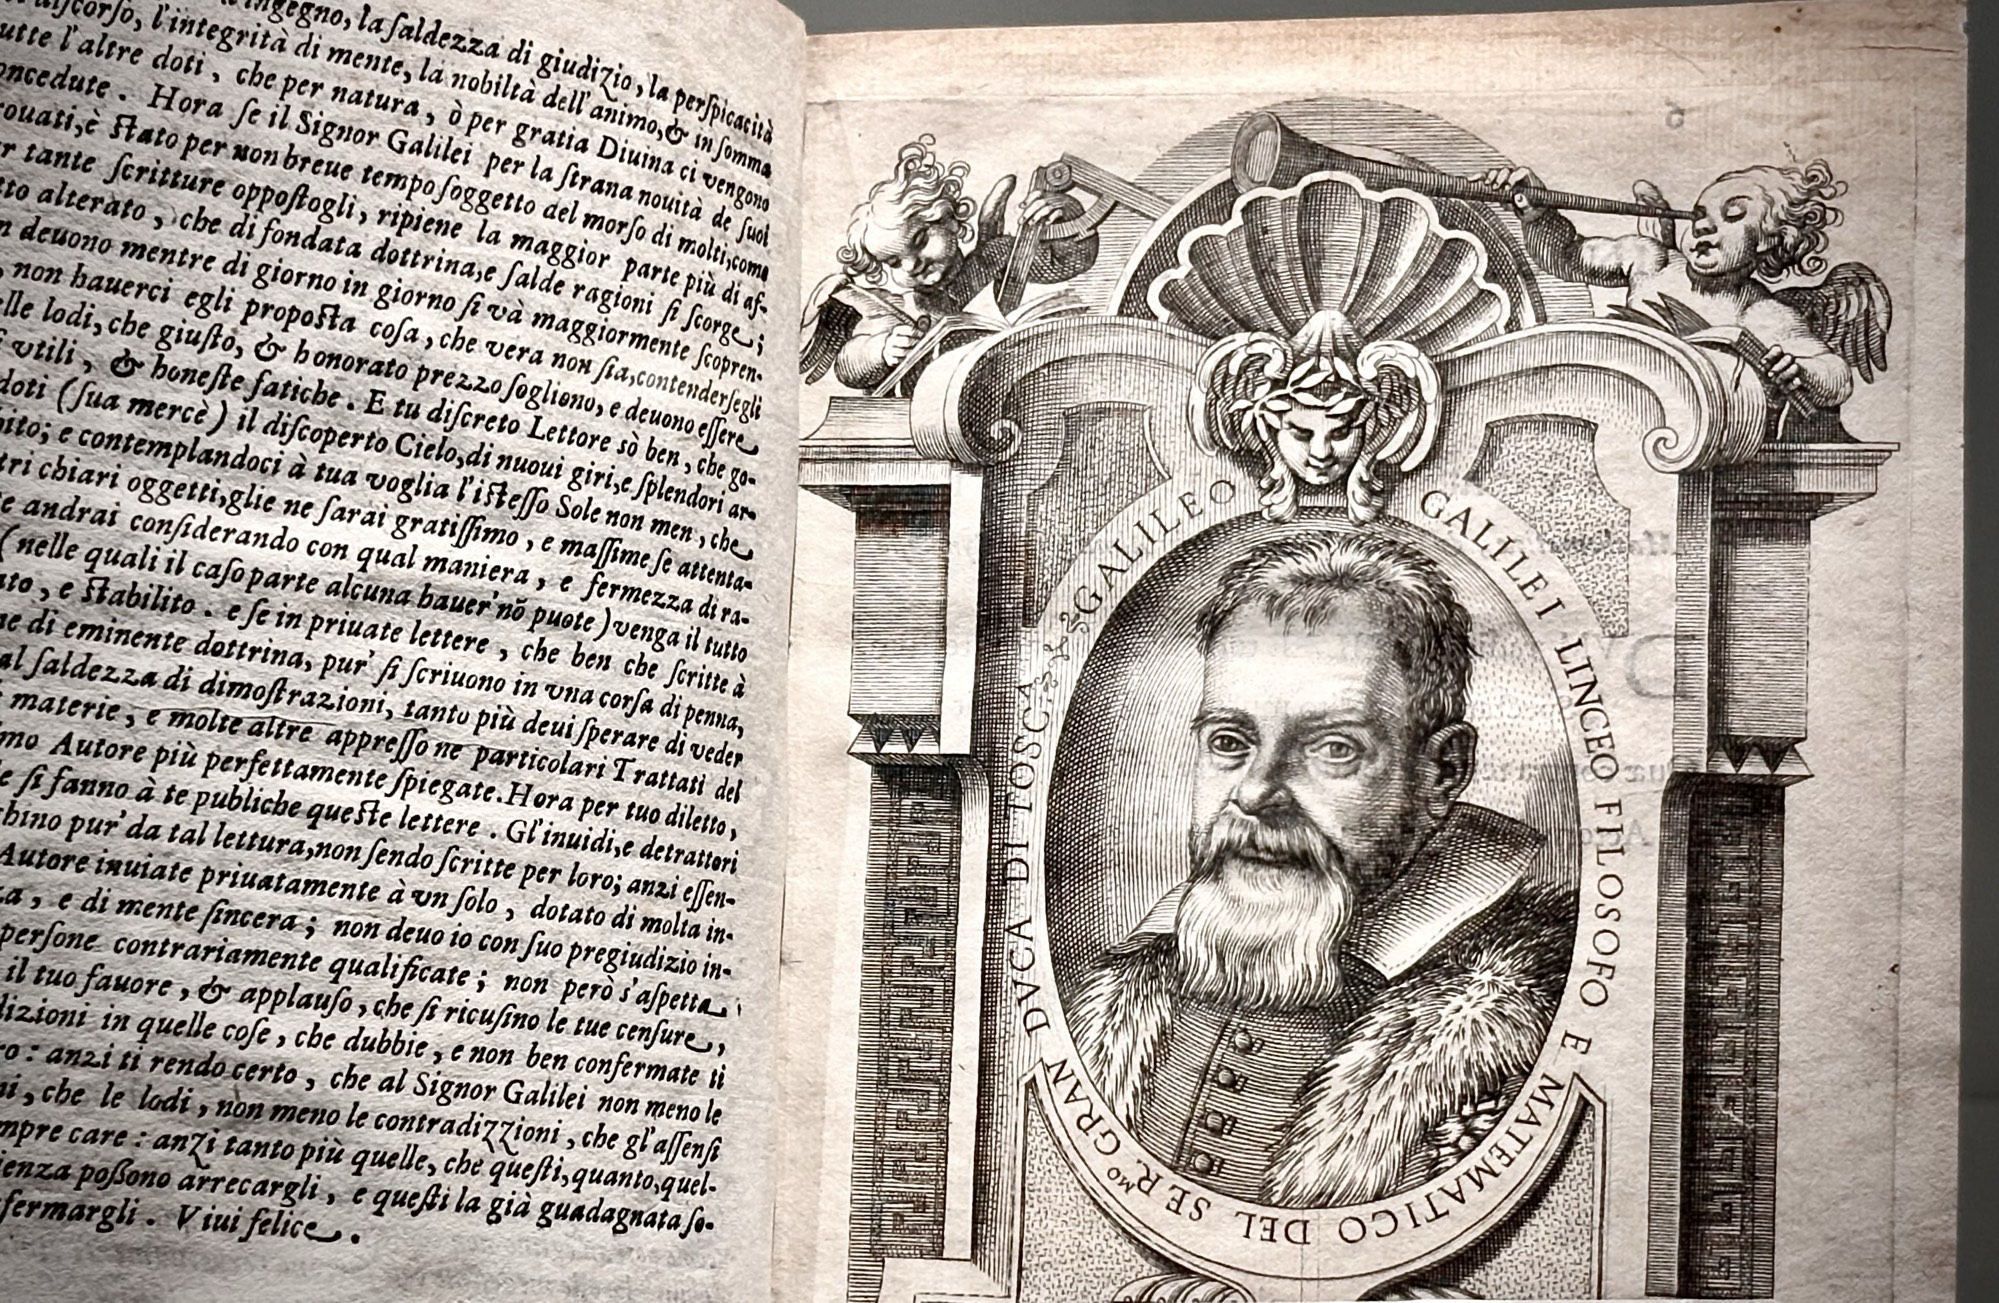 ingegno, la ſaldezza di giudizio, la perſpicacità
diſcorſo, l'integrità di mente, la nobiltà dell'animo, & in ſomma
utte l'altre doti, che per natura, ò per gratia Diuina ci vengono
oncedute. Hora ſe il Signor Galilei per la ſtrana nouità de ſuoi
ouati, è ſtato per non breue tempo ſoggetto del morſo di molti, come
r tante ſcritture oppoſtogli, ripiene la maggior parte più di af-
tto alterato, che di fondata dottrina, e ſalde ragioni ſi ſcorge;
n deuono mentre di giorno in giorno ſi và maggiormente ſcopren-
, non hauerci egli propoſta coſa, che vera non ſia, contenderſegli
elle lodi, che giuſto, & honorato prezzo ſogliono, e deuono eſſere
i vtili, & honeſte fatiche. E tu diſcreto Lettore sò ben, che go-
doti (ſua mercè) il diſcoperto Cielo, di nuoui giri, e ſplendori ar-
hito; e contemplandoci à tua voglia l'iſteſſo Sole non men, che
tri chiari oggetti, glie ne ſarai gratiſſimo, e maſſime ſe attenta-
e andrai conſiderando con qual maniera, e fermezza di ra-
(nelle quali il caſo parte alcuna hauer' nõ puote) venga il tutto
ato, e ſtabilito. e ſe in priuate lettere, che ben che ſcritte à
ne di eminente dottrina, pur' ſi ſcriuono in vna corſa di penna,
al ſaldezza di dimoſtrazioni, tanto più deui ſperare di veder
materie, e molte altre appreſſo ne particolari Trattati del
mo Autore più perfettamente ſpiegate. Hora per tuo diletto,
e ſi fanno à te publiche queſte lettere. Gl'inuidi, e detrattori
hino pur' da tal lettura, non ſendo ſcritte per loro; anzi eſſen-
Autore inuiate priuatamente à vn ſolo, dotato di molta in-
za, e di mente ſincera; non deuo io con ſuo pregiudizio in-
perſone contrariamente qualificate; non però s'aſpetta
il tuo fauore, & applauſo, che ſi ricuſino le tue cenſure,
dizioni in quelle coſe, che dubbie, e non ben confermate ti
ro: anzi ti rendo certo, che al Signor Galilei non meno le
ni, che le lodi, non meno le contradizzioni, che gl'aſſenſi
mpre care: anzi tanto più quelle, che queſti, quanto, quel-
ienza poßono arrecargli, e queſti la già guadagnata ſo-
fermargli. Viui felice.
GALILEO GALILEI LINCEO FILOSOFO E MATEMATICO DEL SER.MO GRAN DVCA DI TOSCA